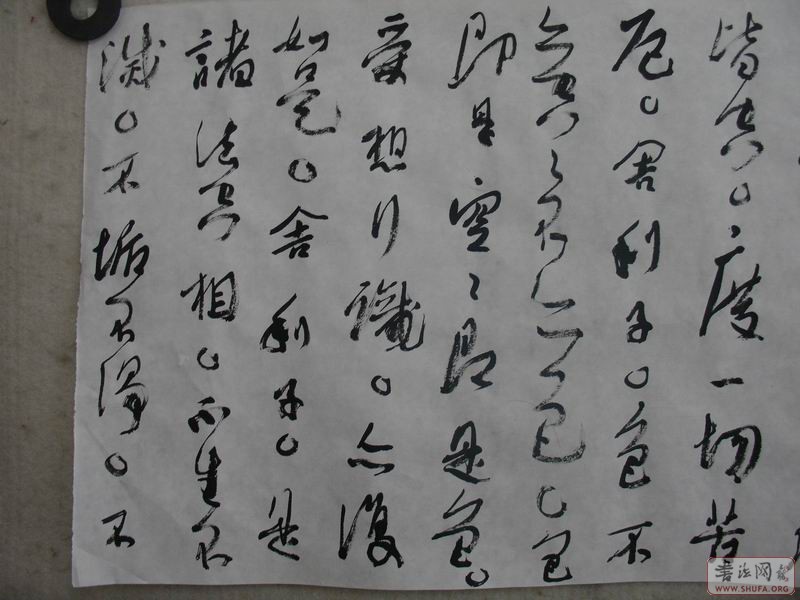 皆空。度一切苦
厄。舍利子。色不
異空々不異色。色
即是空々即是色。
受想行識。亦復
如是。舍利子。是
諸法空相。不生不
滅。不垢不淨。不
WWW.SHUFA.ORG